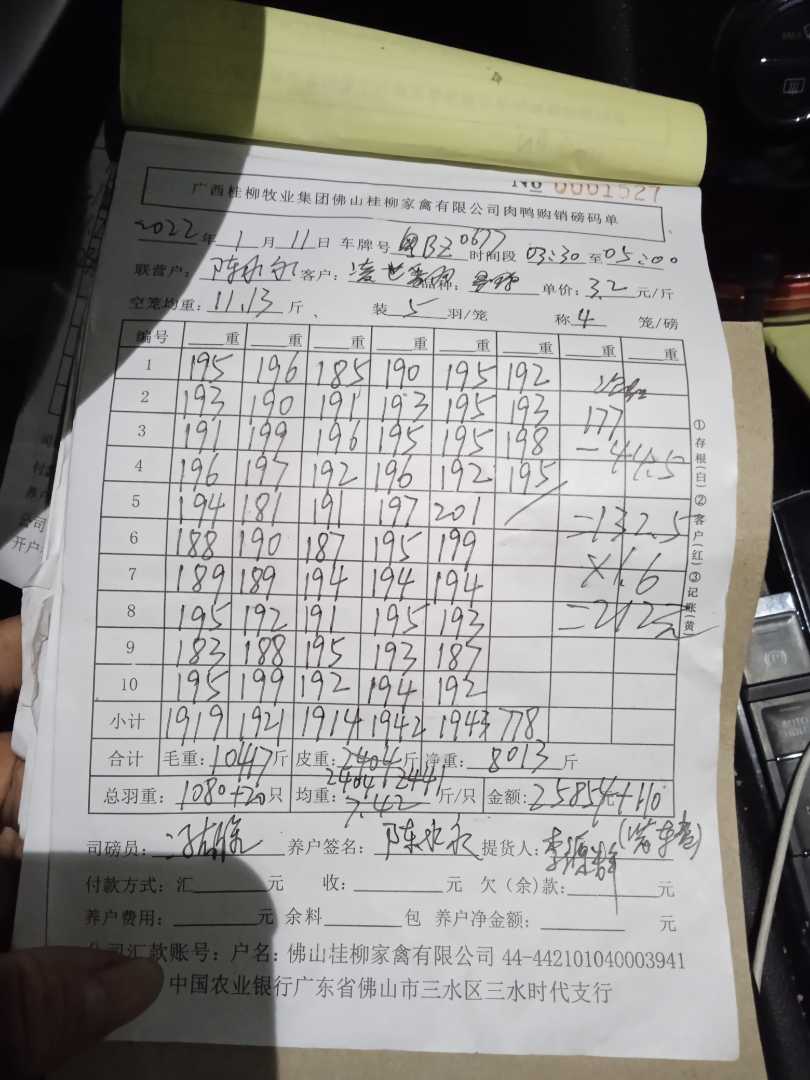 No 0001527
广西桂柳牧业集团佛山桂柳家禽有限公司肉鸭购销磅码单
2022年1月11日 车牌号 粤BZ0677 时间段 03:30至05:00
联营户: 陈永永 客户: 单价: 3.2 元/斤
空笼均重: 11.13 斤、 装 5 羽/笼 称 4 笼/磅
编号 重 重 重 重 重 重 重 重
1 195 196 185 190 195 192
2 193 190 191 193 195 193 177
3 191 199 196 195 195 198 -44.5
4 196 197 192 196 192 195
5 194 181 191 197 201 / =132.5
6 188 190 187 195 199 ×1.6
7 189 189 194 194 194
8 195 192 191 195 193 =212元
9 183 188 195 193 187
10 195 199 192 194 192
小计 1919 1921 1914 1942 1943 778
合计 毛重: 10417斤 皮重: 2404斤 净重: 8013 斤
总羽重: 1080+20只 均重: 2404 2441 7.42 斤/只 金额: 25854元+110
司磅员: 养户签名: 陈永永 提货人:
付款方式: 汇 元 收: 元 欠(余)款: 元
养户费用: 元 余料 包 养户净金额: 元
公司汇款账号: 户名: 佛山桂柳家禽有限公司 44-442101040003941
中国农业银行广东省佛山市三水区三水时代支行
①存根(白)②客户(红)③记账(黄)